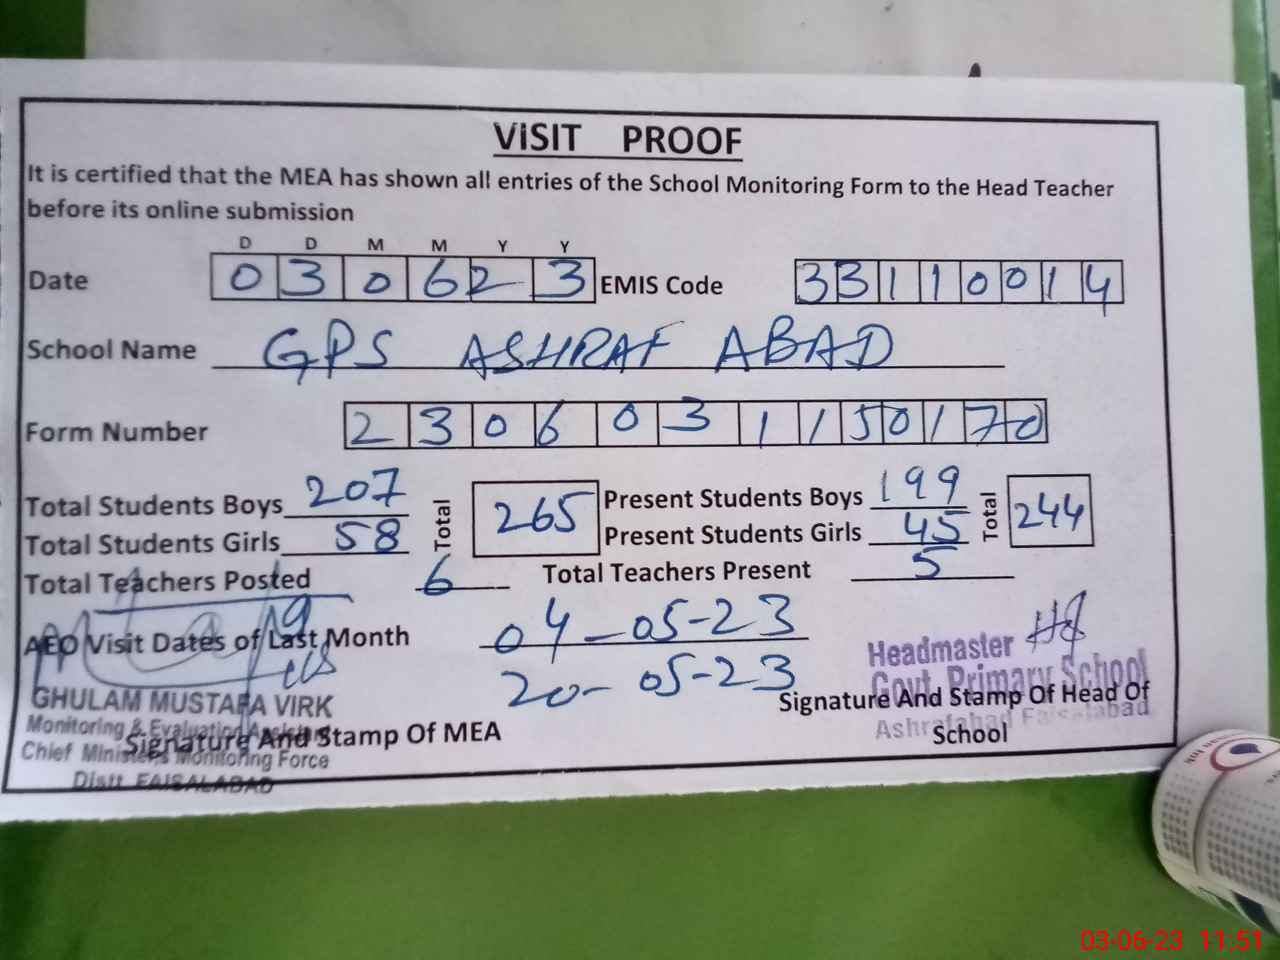 VISIT PROOF
It is certified that the MEA has shown all entries of the School Monitoring Form to the Head Teacher
before its online submission
D D M M Y Y
Date 0 3 0 6 2 3 EMIS Code 3 3 1 1 0 0 1 4
School Name GPS ASHRAF ABAD
Form Number 2 3 0 6 0 3 1 1 5 0 1 7 0
Total Students Boys 207 Total 265 Present Students Boys 199 Total 244
Total Students Girls 58 Present Students Girls 45
Total Teachers Posted 6 Total Teachers Present 5
AEO Visit Dates of Last Month 04-05-23
20-05-23
Headmaster
Govt. Primary School
Ashrafabad Faisalabad
Signature And Stamp Of Head Of
School
GHULAM MUSTAFA VIRK
Monitoring & Evaluation Assistant
Chief Minister's Monitoring Force
Distt. FAISALABAD
Signature And Stamp Of MEA
03-06-23 11:51